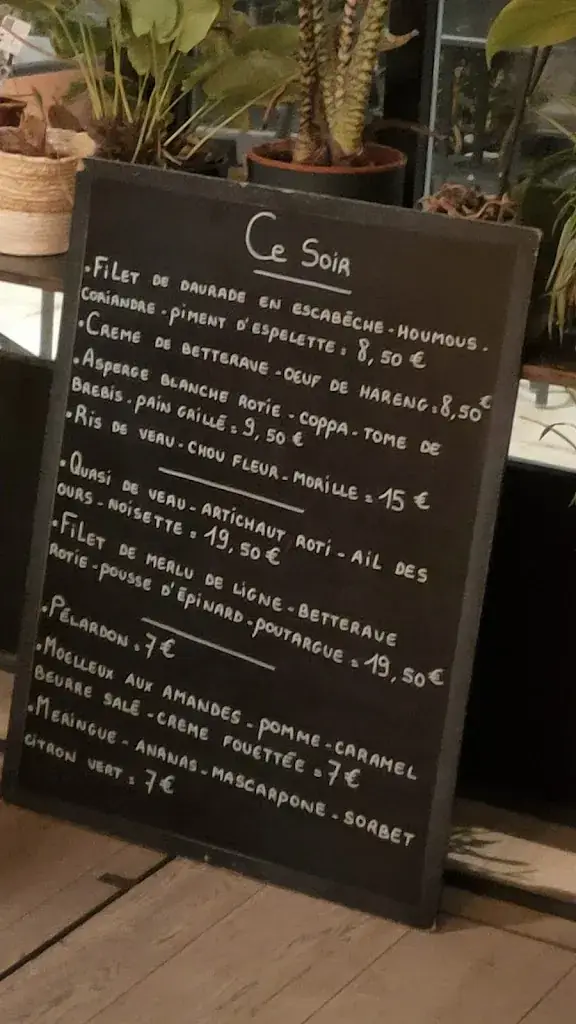 Ce Soir
• Filet de daurade en escabèche - houmous -
coriandre - piment d'espelette = 8,50 €
• Creme de betterave - oeuf de hareng = 8,50 €
• Asperge blanche rotie - coppa - tome de
brebis - pain grillé = 9,50 €
• Ris de veau - chou fleur - morille = 15 €
• Quasi de veau - artichaut roti - ail des
ours - noisette = 19,50 €
• Filet de merlu de ligne - betterave
rotie - pousse d'épinard - poutargue = 19,50 €
• Pélardon = 7 €
• Moelleux aux amandes - pomme - caramel
beurre salé - creme fouettée = 7 €
• Meringue - ananas - mascarpone - sorbet
citron vert = 7 €